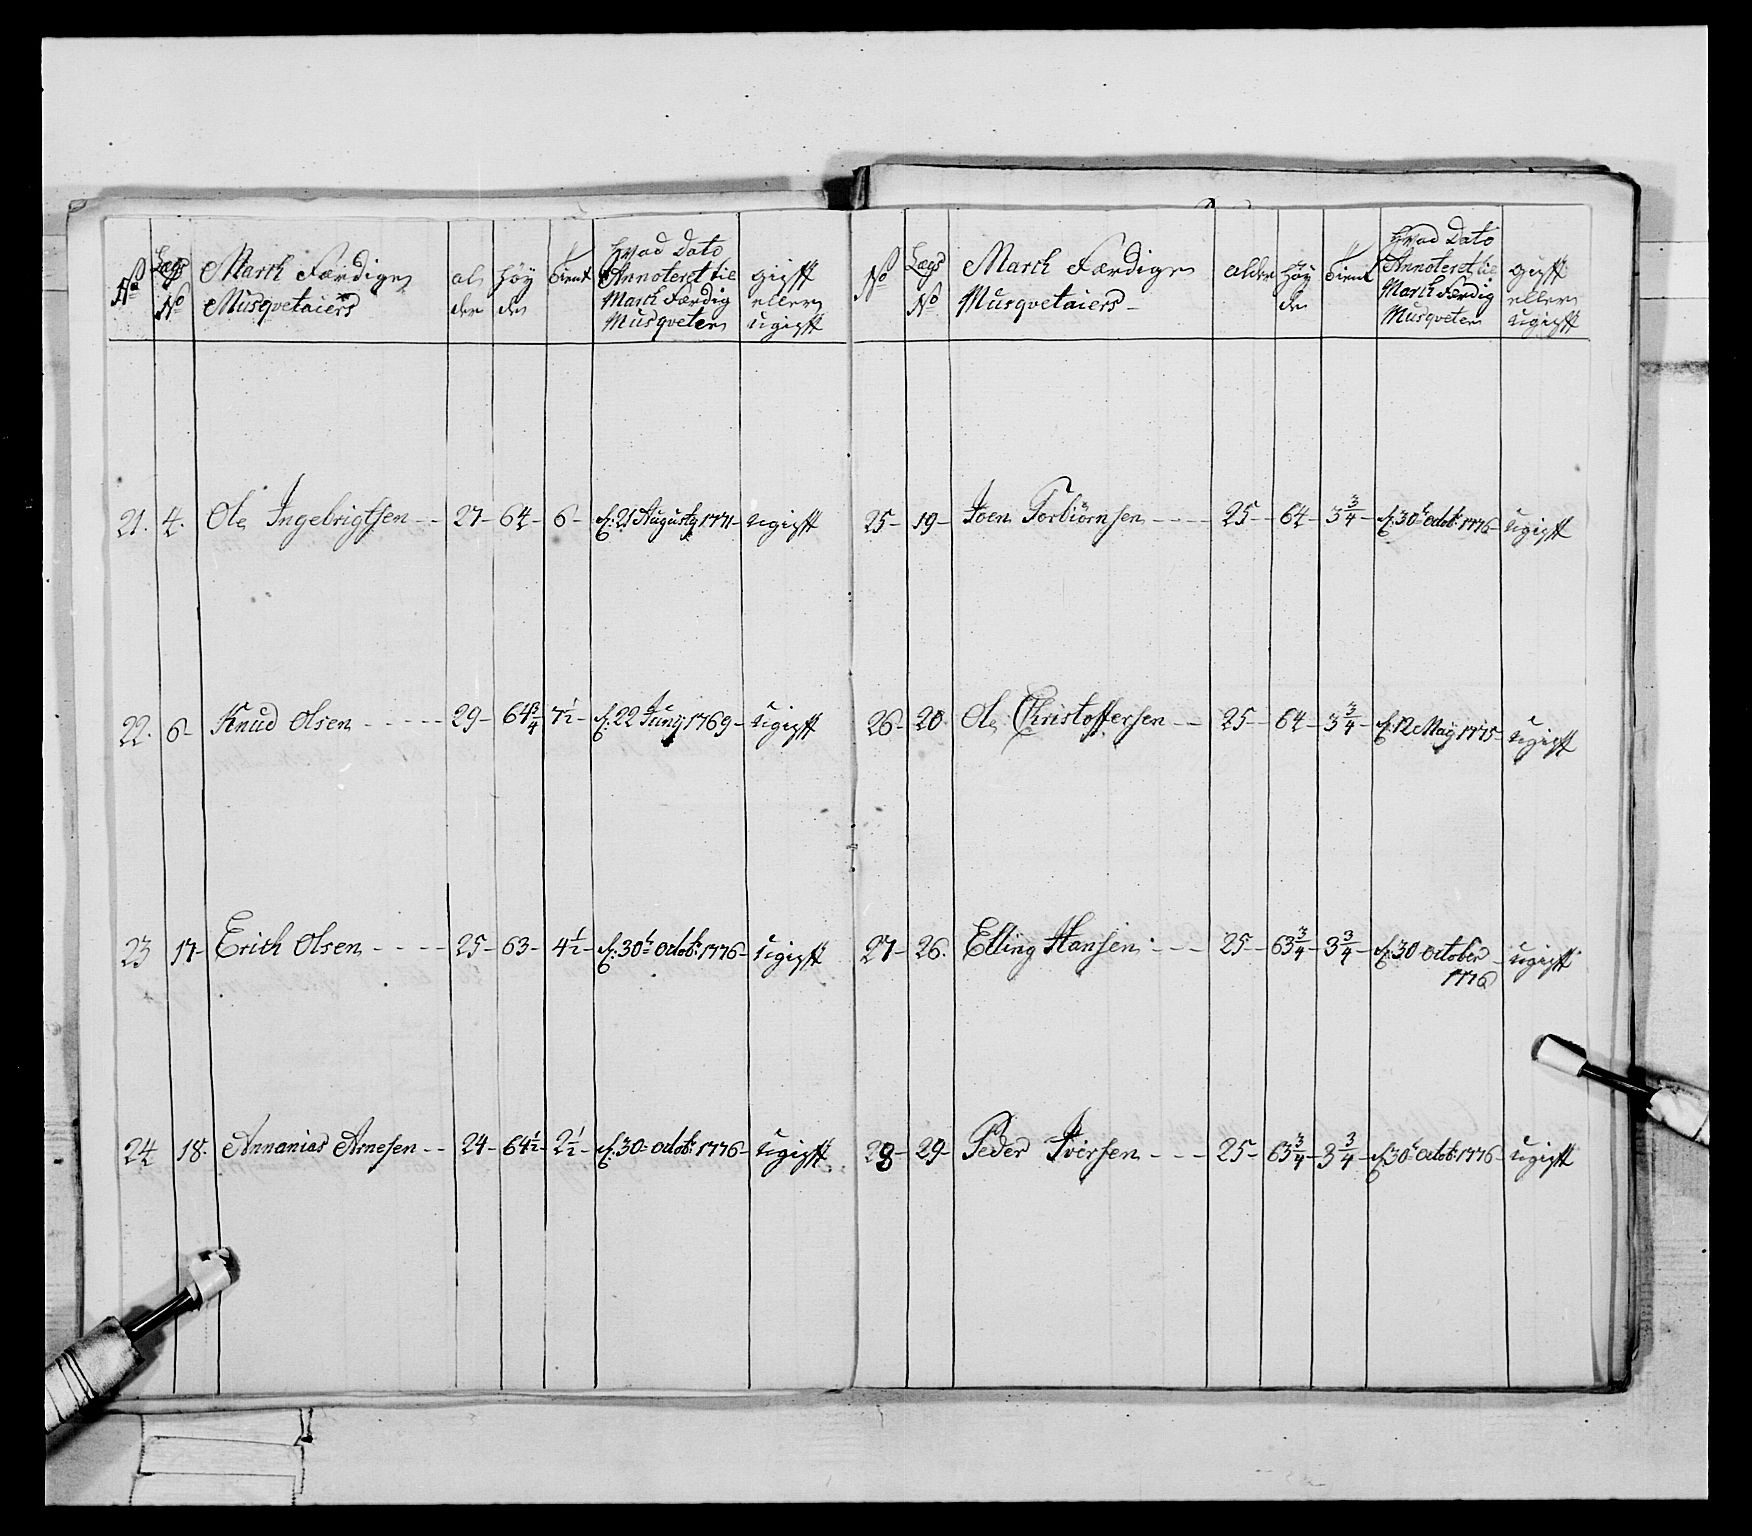 No
Lægs
No
March Færdige
Musqvetaiers
al
der
Høy
de
Tient
Hvad Dato
Annoteret til
March Færdig
Musqveteer
gifft
eller
ugifft
21. 4. Ole Ingebrigtsen -- 27- 64- 6- d: 21 Augusty 1771- ugifft
22. 6- Knud Olsen ----- 29- 64¾ 7½- d: 22 Juny 1769- ugifft
23 17- Erich Olsen ---- 25- 63- 4½- d: 30t octob: 1776- ugifft
24 18. Annanias Arnesen -- 24- 64½- 2½- d: 30- octob: 1776- ugifft
No
Lægs
No
March Færdige
Musqvetaiers-
alder
Høy
de
Tient
Hvad Dato
Annoteret til
March Færdig
Musqveteer
gifft
eller
ugifft
25- 19- Joen Torbiörnsen ---- 25- 64- 3¾- d: 30t octob: 1776- ugifft
26- 20. Ole Christoffersen -- 25- 64- 3¾- d: 12 May 1775- ugifft
27- 26. Elling Hansen --- 25- 63¾- 3¾- d: 30 october - ugifft
1776
28- 29- Peder Iversen --- 25- 63¾- 3¾- d: 30t octob: 1776- ugifft